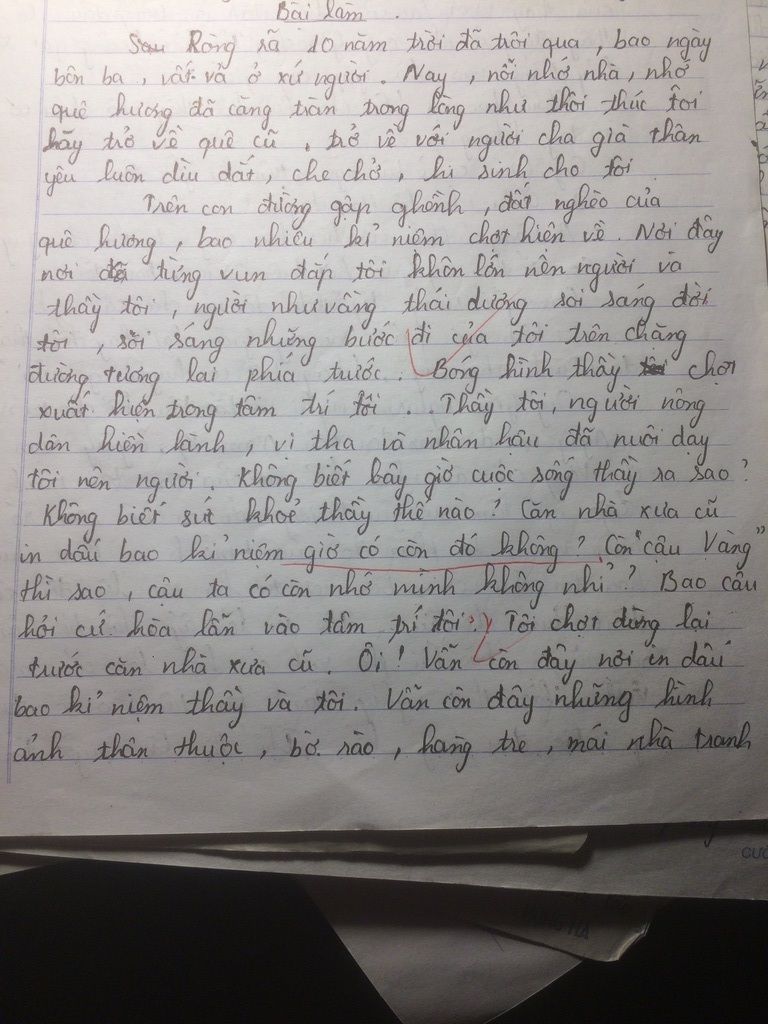 Bài làm.
Ròng rã 10 năm trời đã trôi qua, bao ngày
bôn ba, vất vả ở xứ người. Nay, nỗi nhớ nhà, nhớ
quê hương đã căng tràn trong lòng như thôi thúc tôi
hãy trở về quê cũ, trở về với người cha già thân
yêu luôn dìu dắt, che chở, hi sinh cho tôi
Trên con đường gập ghềnh, đất nghèo của
quê hương, bao nhiêu kỉ niệm chợt hiện về. Nơi đây
nơi đã từng vun đắp tôi khôn lớn nên người và
thầy tôi, người như vầng thái dương soi sáng đời
tôi, soi sáng những bước đi của tôi trên chặng
đường tương lai phía trước. Bóng hình thầy chợt
xuất hiện trong tâm trí tôi. Thầy tôi, người nông
dân hiền lành, vị tha và nhân hậu đã nuôi dạy
tôi nên người. Không biết bây giờ cuộc sống thầy ra sao?
Không biết sức khoẻ thầy thế nào? Căn nhà xưa cũ
in dấu bao kỉ niệm giờ có còn đó không? Còn "cậu Vàng"
thì sao, cậu ta có còn nhớ mình không nhỉ? Bao câu
hỏi cứ hòa lẫn vào tâm trí tôi. Tôi chợt dừng lại
trước căn nhà xưa cũ. Ôi! Vẫn còn đây nơi in dấu
bao kỉ niệm thầy và tôi. Vẫn còn đây những hình
ảnh thân thuộc, bờ rào, hàng tre, mái nhà tranh